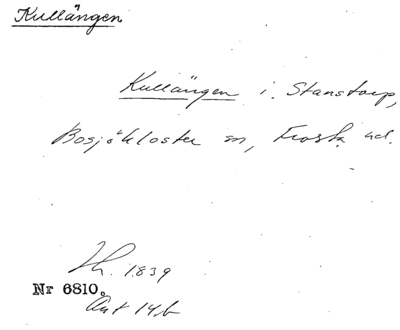 Kullängen
Kullängen i Stanstorp,
Bosjökloster sn, Frosta hd.
Th. 1839
Nr 6810.
Akt 14b